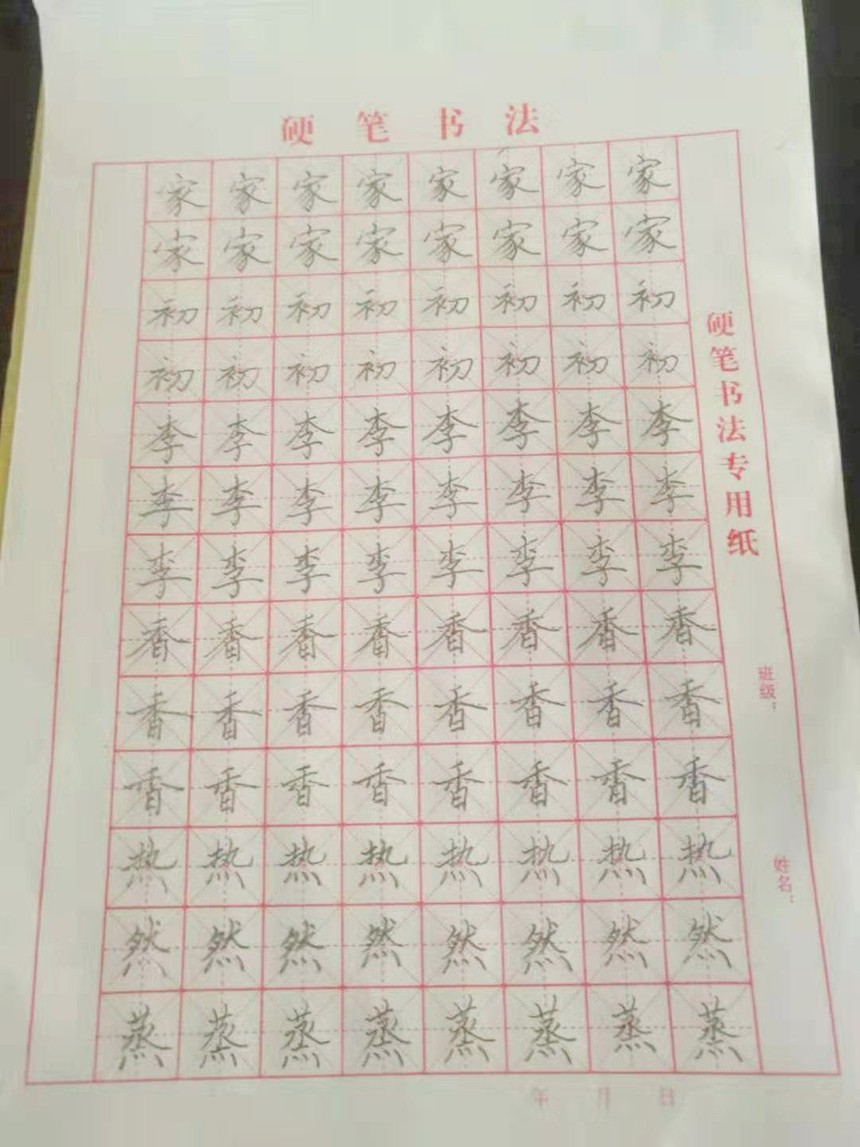 硬笔书法
家家家家家家家家
家家家家家家家家
初初初初初初初初
初初初初初初初初
李李李李李李李李
李李李李李李李李
李李李李李李李李
香香香香香香香香
香香香香香香香香
香香香香香香香香
热热热热热热热热
然然然然然然然然
蒸蒸蒸蒸蒸蒸蒸蒸
硬笔书法专用纸
班级：
姓名：
年 月 日